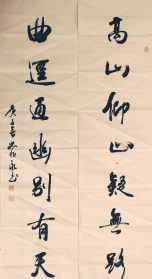 高山仰止疑無路
曲逕通幽別有天